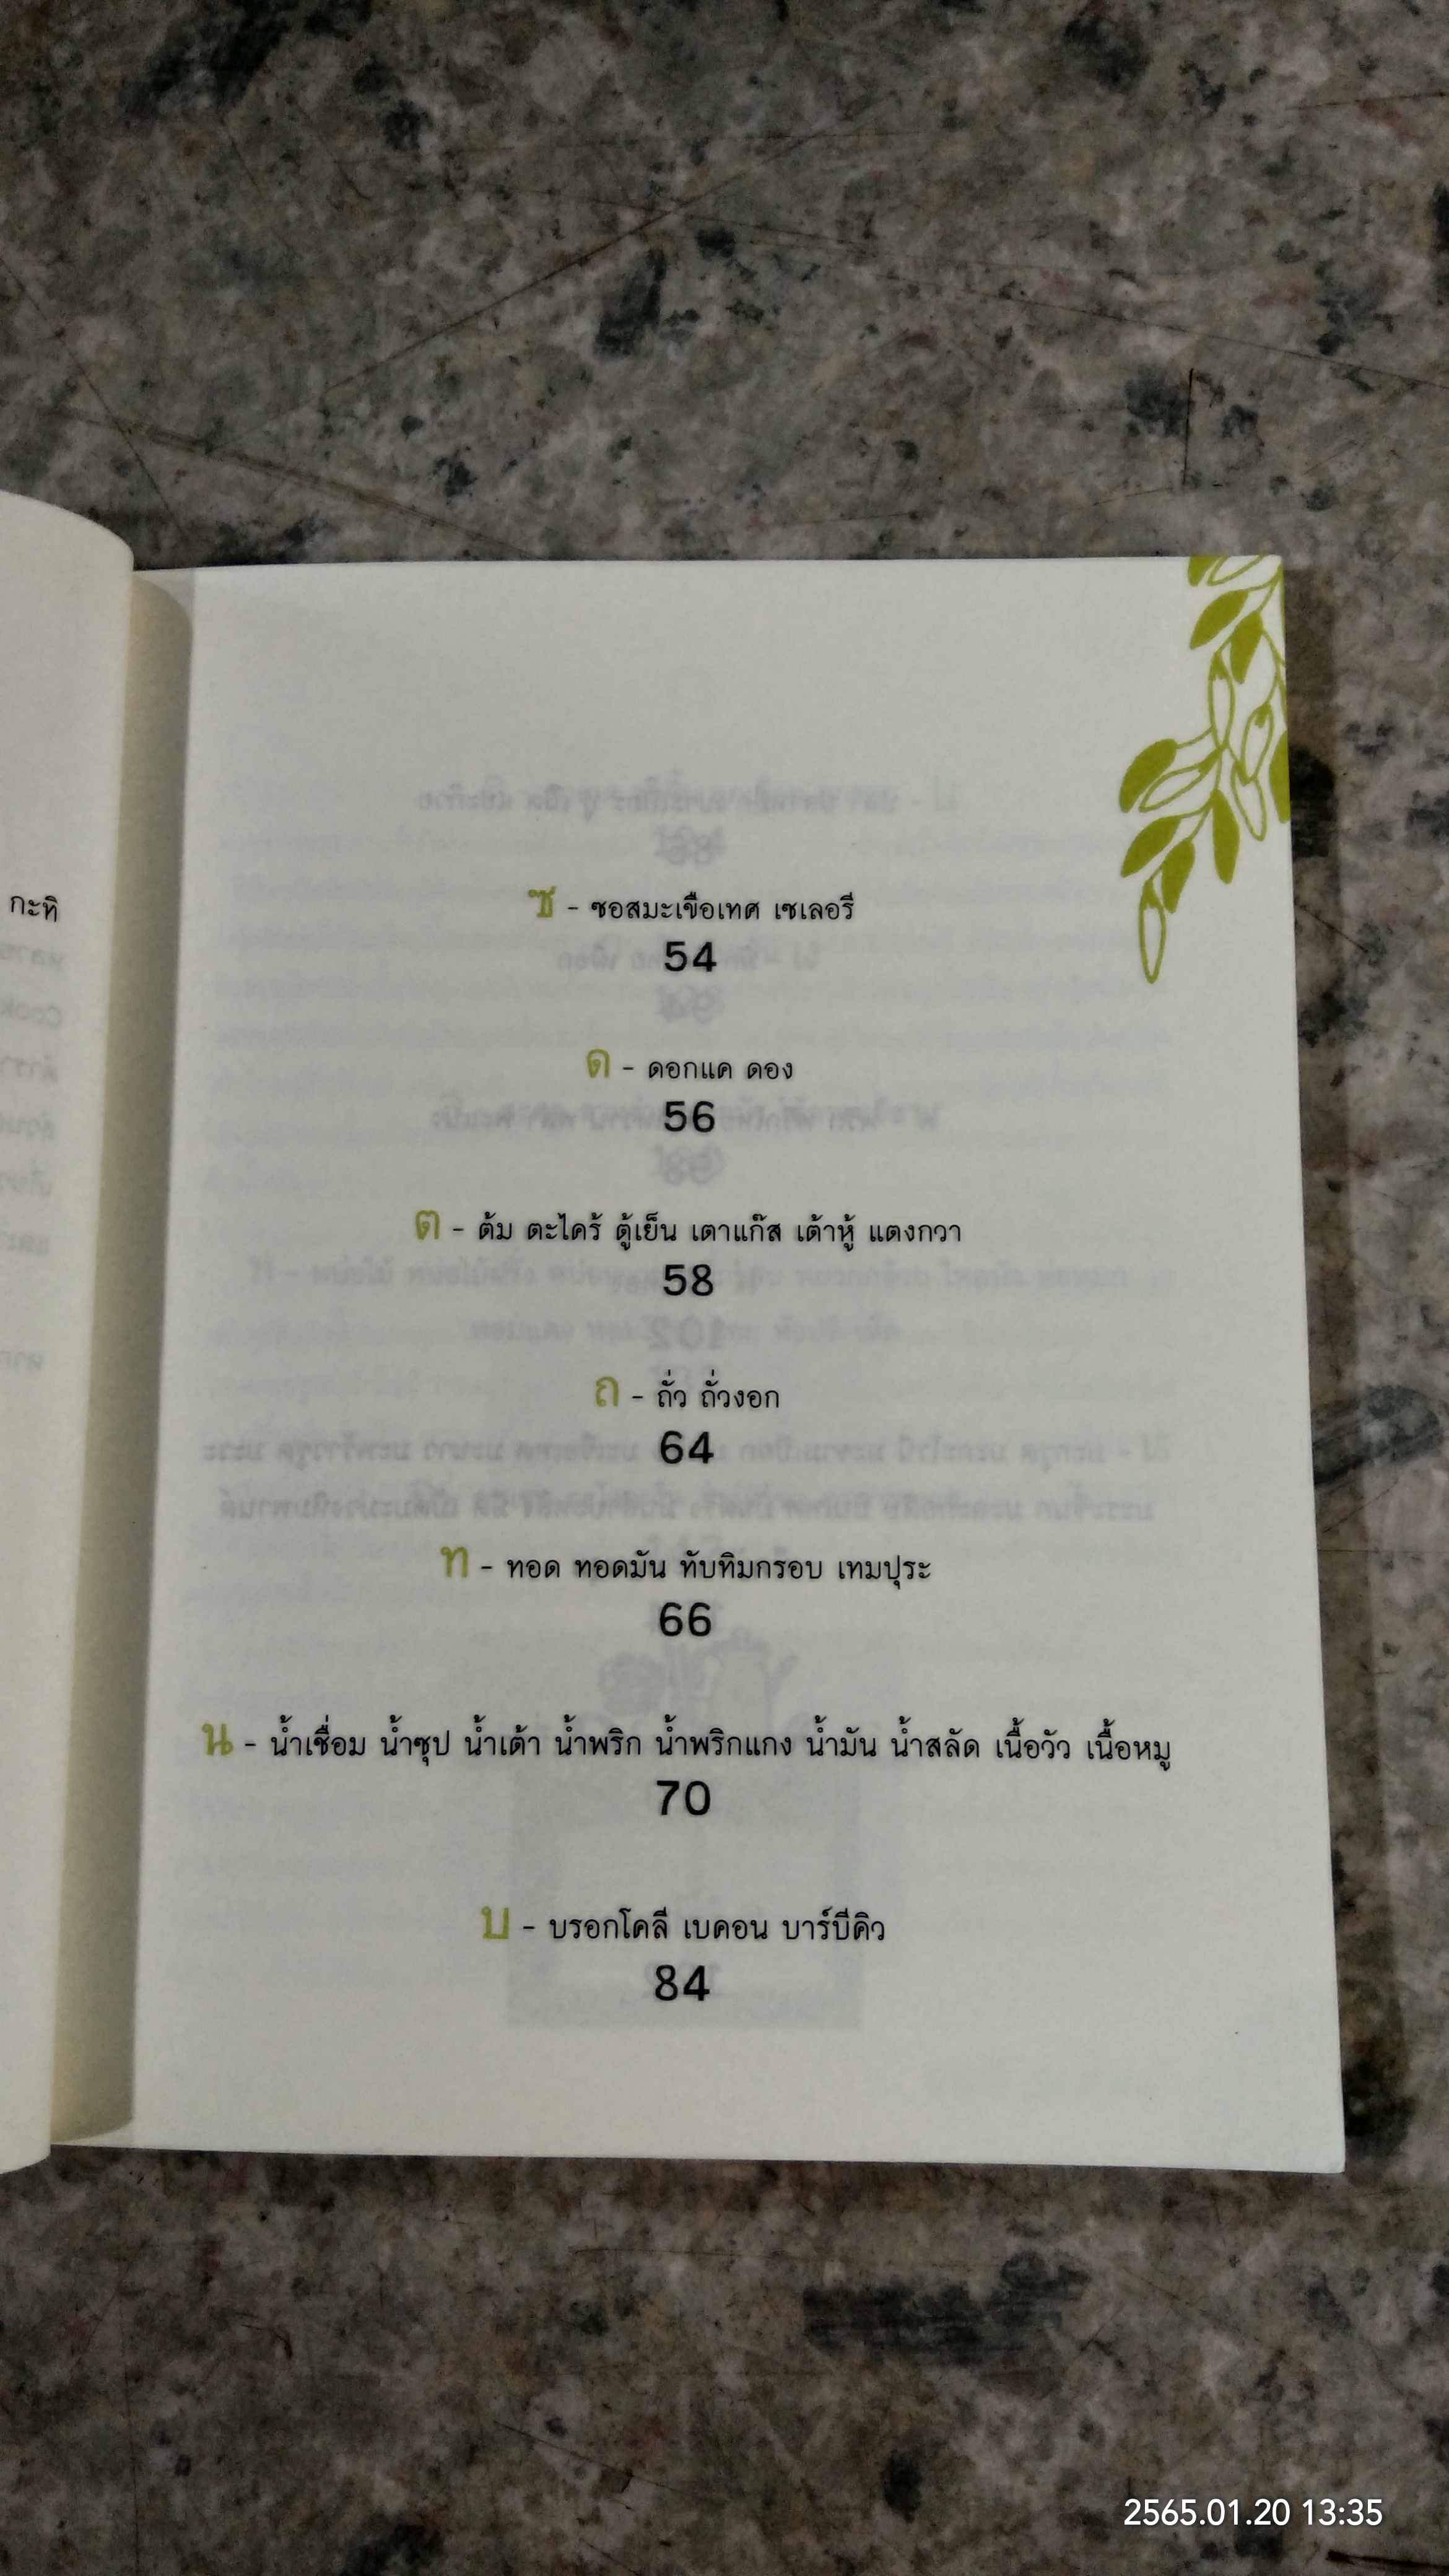 กะทิ
ซ - ซอสมะเขือเทศ เซเลอรี
54
ด - ดอกแค ดอง
56
ต - ต้ม ตะไคร้ ตู้เย็น เตาแก๊ส เต้าหู้ แตงกวา
58
ถ - ถั่ว ถั่วงอก
64
ท - ทอด ทอดมัน ทับทิมกรอบ เทมปุระ
66
น - น้ำเชื่อม น้ำซุป น้ำเต้า น้ำพริก น้ำพริกแกง น้ำมัน น้ำสลัด เนื้อวัว เนื้อหมู
70
บ - บรอกโคลี เบคอน บาร์บีคิว
84
2565.01.20 13:35